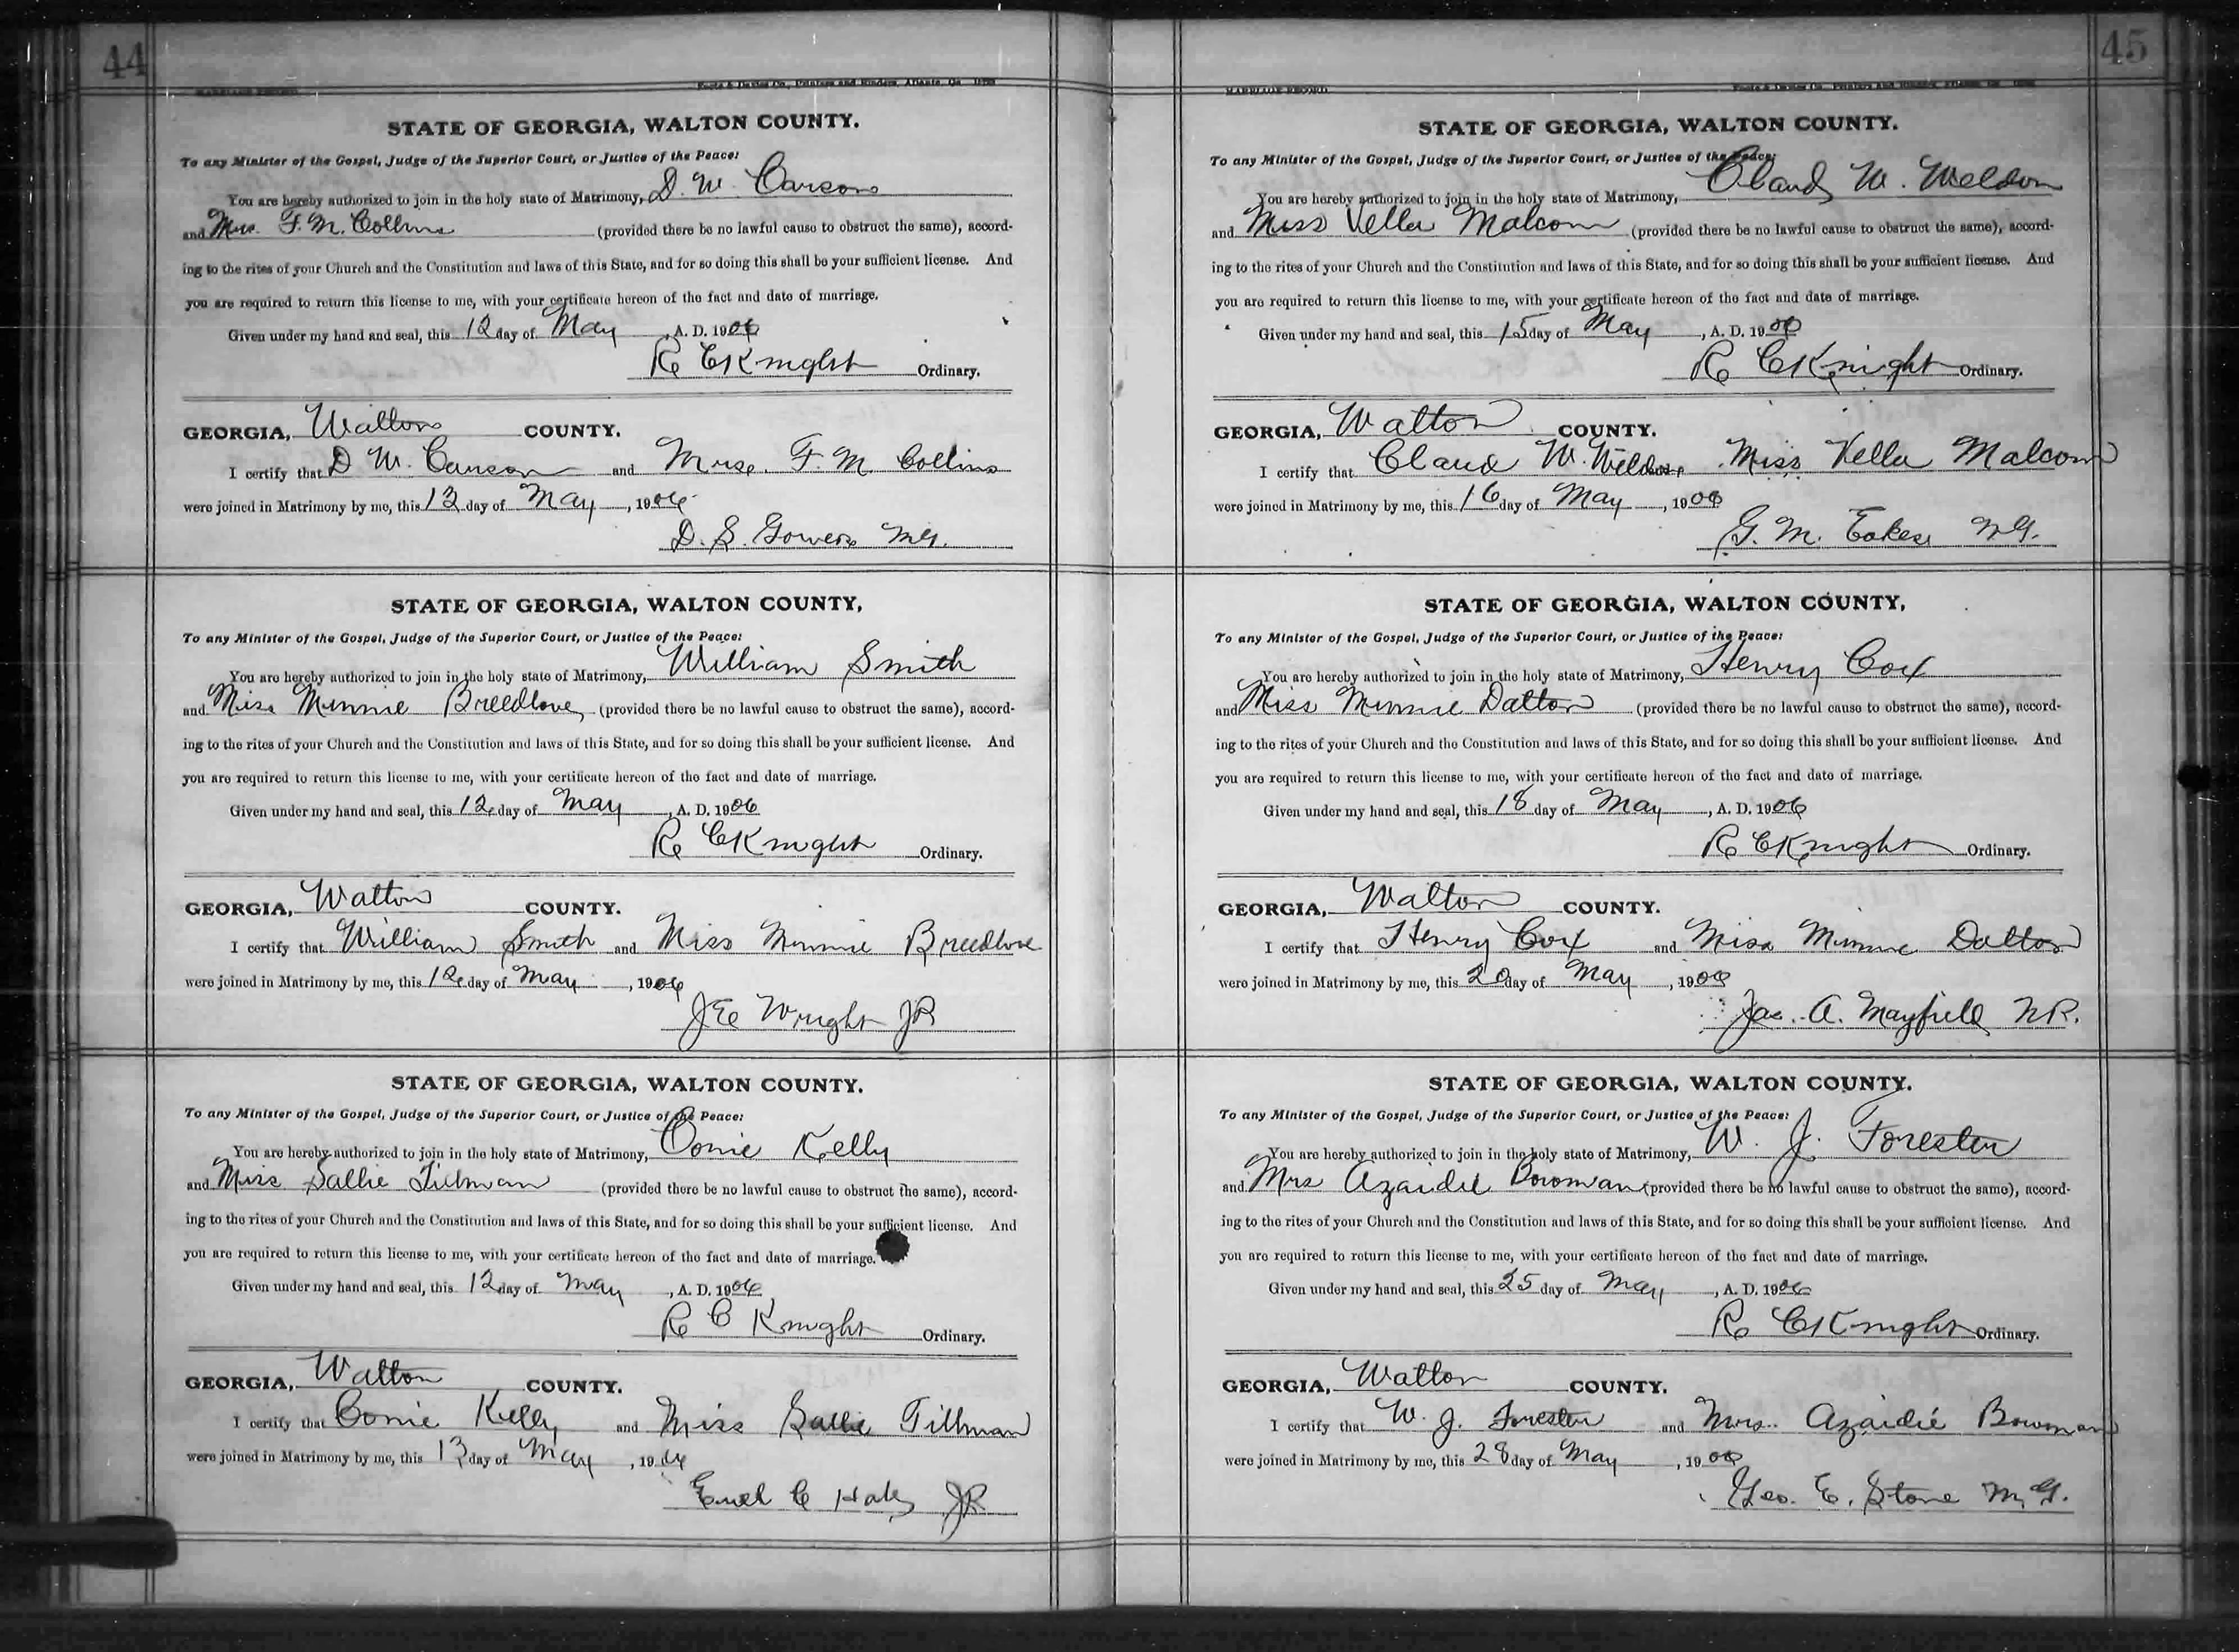 44
MARRIAGE RECORD
Foote & Davies Co., Printers and Binders, Atlanta, Ga.
STATE OF GEORGIA, WALTON COUNTY.
To any Minister of the Gospel, Judge of the Superior Court, or Justice of the Peace:
You are hereby authorized to join in the holy state of Matrimony, D. W. Carson
and Mrs. F. M. Collins (provided there be no lawful cause to obstruct the same), accord-
ing to the rites of your Church and the Constitution and laws of this State, and for so doing this shall be your sufficient license. And
you are required to return this license to me, with your certificate hereon of the fact and date of marriage.
Given under my hand and seal, this 12 day of May, A. D. 1906
R C Knight Ordinary.
GEORGIA, Walton COUNTY.
I certify that D W. Carson and Mrs. F. M. Collins
were joined in Matrimony by me, this 13 day of May, 1906
D. S. Gowers MG.
STATE OF GEORGIA, WALTON COUNTY,
To any Minister of the Gospel, Judge of the Superior Court, or Justice of the Peace:
You are hereby authorized to join in the holy state of Matrimony, William Smith
and Miss Minnie Breedlove (provided there be no lawful cause to obstruct the same), accord-
ing to the rites of your Church and the Constitution and laws of this State, and for so doing this shall be your sufficient license. And
you are required to return this license to me, with your certificate hereon of the fact and date of marriage.
Given under my hand and seal, this 12 day of May, A. D. 1906
R C Knight Ordinary.
GEORGIA, Walton COUNTY.
I certify that William Smith and Miss Minnie Breedlove
were joined in Matrimony by me, this 12 day of May, 1906
Wright JP
STATE OF GEORGIA, WALTON COUNTY.
To any Minister of the Gospel, Judge of the Superior Court, or Justice of the Peace:
You are hereby authorized to join in the holy state of Matrimony, Conie Kelly
and Miss Sallie Tillman (provided there be no lawful cause to obstruct the same), accord-
ing to the rites of your Church and the Constitution and laws of this State, and for so doing this shall be your sufficient license. And
you are required to return this license to me, with your certificate hereon of the fact and date of marriage.
Given under my hand and seal, this 12 day of May, A. D. 1906
R C Knight Ordinary.
GEORGIA, Walton COUNTY.
I certify that Conie Kelly and Miss Sallie Tillman
were joined in Matrimony by me, this 13 day of May, 1906
C JP
45
MARRIAGE RECORD
Foote & Davies Co., Printers and Binders, Atlanta, Ga.
STATE OF GEORGIA, WALTON COUNTY.
To any Minister of the Gospel, Judge of the Superior Court, or Justice of the Peace:
You are hereby authorized to join in the holy state of Matrimony, Claud W. Weldon
and Miss Vella Malcom (provided there be no lawful cause to obstruct the same), accord-
ing to the rites of your Church and the Constitution and laws of this State, and for so doing this shall be your sufficient license. And
you are required to return this license to me, with your certificate hereon of the fact and date of marriage.
Given under my hand and seal, this 15 day of May, A. D. 1906
R C Knight Ordinary.
GEORGIA, Walton COUNTY.
I certify that Claud W. Weldon Miss Vella Malcom
were joined in Matrimony by me, this 16 day of May, 1906
G. M. Eakes MG.
STATE OF GEORGIA, WALTON COUNTY,
To any Minister of the Gospel, Judge of the Superior Court, or Justice of the Peace:
You are hereby authorized to join in the holy state of Matrimony, Henry Cox
and Miss Minnie Dalton (provided there be no lawful cause to obstruct the same), accord-
ing to the rites of your Church and the Constitution and laws of this State, and for so doing this shall be your sufficient license. And
you are required to return this license to me, with your certificate hereon of the fact and date of marriage.
Given under my hand and seal, this 18 day of May, A. D. 1906
R C Knight Ordinary.
GEORGIA, Walton COUNTY.
I certify that Henry Cox and Miss Minnie Dalton
were joined in Matrimony by me, this 20 day of May, 1906
Jas. A. Mayfield N.P.
STATE OF GEORGIA, WALTON COUNTY.
To any Minister of the Gospel, Judge of the Superior Court, or Justice of the Peace:
You are hereby authorized to join in the holy state of Matrimony, W. J. Forester
and Mrs Azaidie Bowman (provided there be no lawful cause to obstruct the same), accord-
ing to the rites of your Church and the Constitution and laws of this State, and for so doing this shall be your sufficient license. And
you are required to return this license to me, with your certificate hereon of the fact and date of marriage.
Given under my hand and seal, this 25 day of May, A. D. 1906
R C Knight Ordinary.
GEORGIA, Walton COUNTY.
I certify that W. J. Forester and Mrs. Azaidie Bowman
were joined in Matrimony by me, this 28 day of May, 1906
Geo. E. Stone M.G.